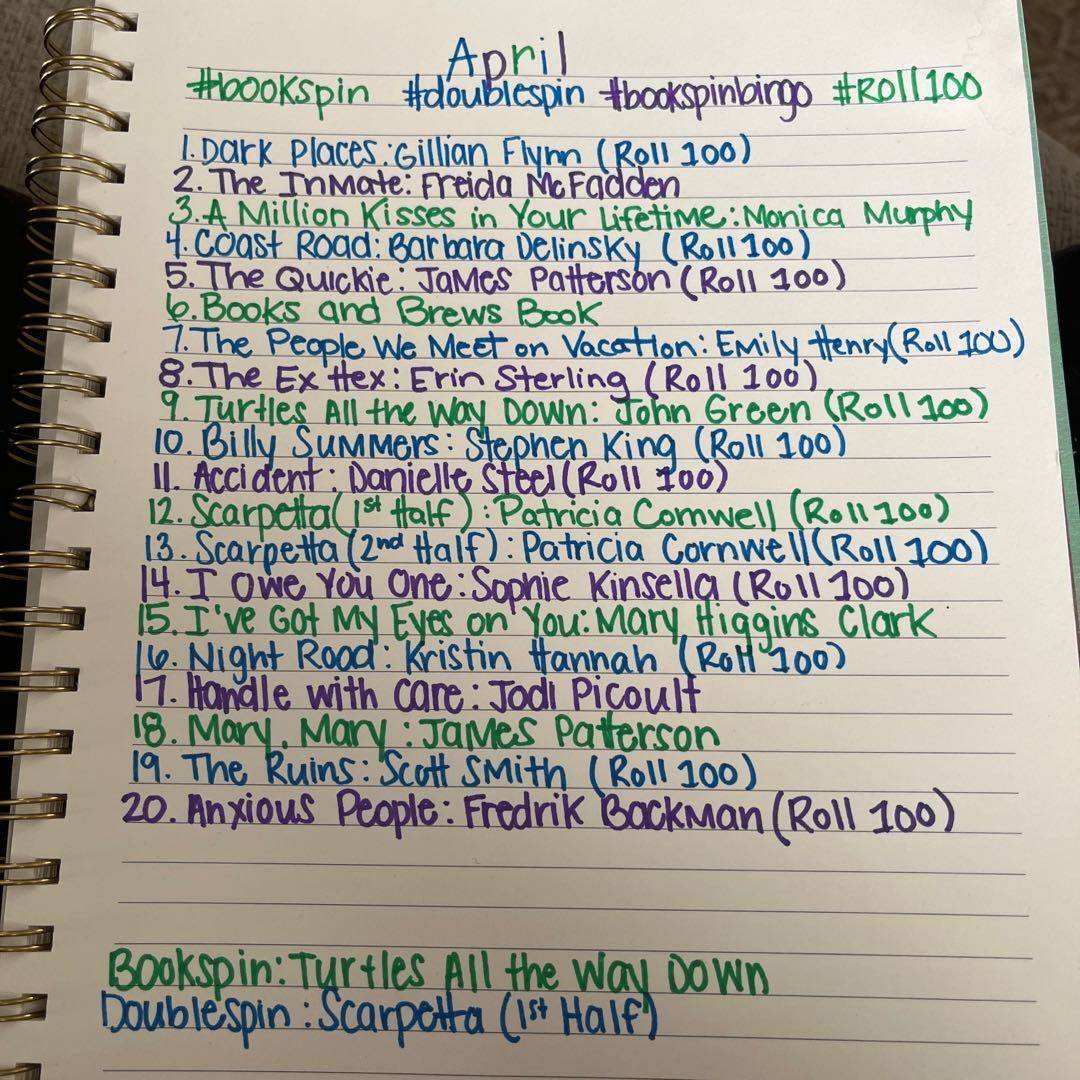 April
#bookspin #doublespin #bookspinbingo #Roll100
1. Dark Places: Gillian Flynn (Roll 100)
2. The Inmate: Freida McFadden
3. A Million Kisses in Your Lifetime: Monica Murphy
4. Coast Road: Barbara Delinsky (Roll 100)
5. The Quickie: James Patterson (Roll 100)
6. Books and Brews Book
7. The People We Meet on Vacation: Emily Henry (Roll 100)
8. The Ex Hex: Erin Sterling (Roll 100)
9. Turtles All the Way Down: John Green (Roll 100)
10. Billy Summers: Stephen King (Roll 100)
11. Accident: Danielle Steel (Roll 100)
12. Scarpetta (1st Half): Patricia Cornwell (Roll 100)
13. Scarpetta (2nd Half): Patricia Cornwell (Roll 100)
14. I Owe You One: Sophie Kinsella (Roll 100)
15. I've Got My Eyes on You: Mary Higgins Clark
16. Night Road: Kristin Hannah (Roll 100)
17. Handle with Care: Jodi Picoult
18. Mary, Mary: James Patterson
19. The Ruins: Scott Smith (Roll 100)
20. Anxious People: Fredrik Backman (Roll 100)
Bookspin: Turtles All the Way Down
Doublespin: Scarpetta (1st Half)